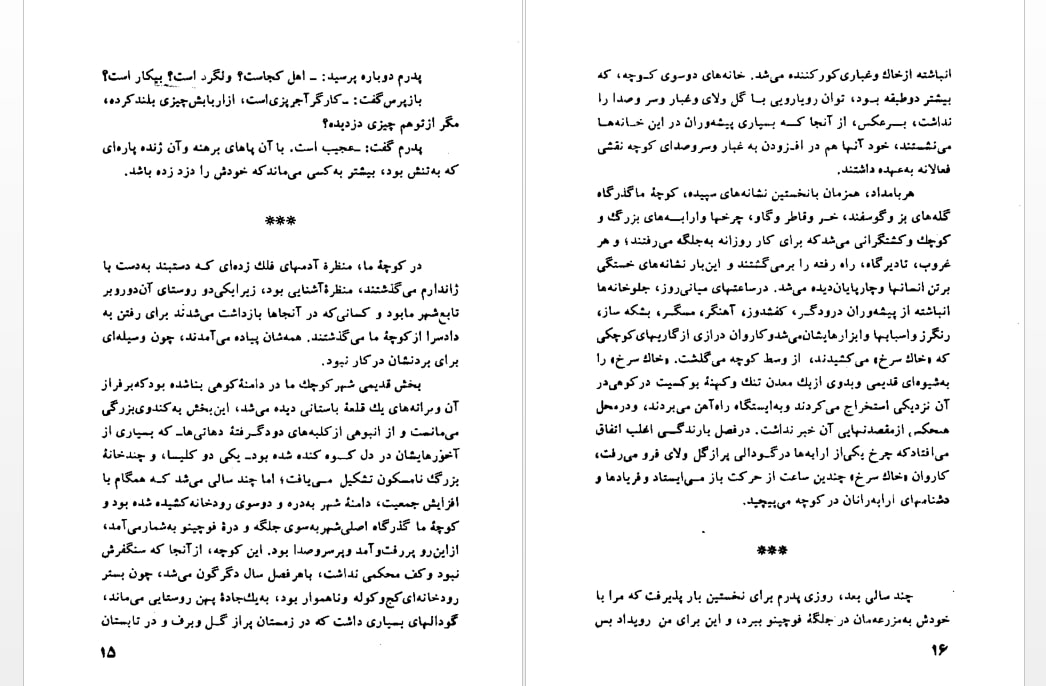 پدرم دوباره پرسید: ـ اهل کجاست؟ ولگرد است؟ بیکار است؟
بازپرس‌گفت: ـ کارگرآجرپزی‌است، ازاربابش‌چیزی بلندکرده،
مگر ازتوهم چیزی دزدیده؟
پدرم گفت: ـ عجیب است. با آن پاهای برهنه وآن ژنده پاره‌ای
که به‌تنش بود، بیشتر به‌کسی می‌ماندکه خودش را دزد زده باشد.
***
در کوچۀ ما، منظرۀ آدمهای فلك زده‌ای کـه دستبند به‌دست با
ژاندارم می‌گذشتند، منظرۀآشنایی بود، زیرایکی‌دو روستای آن‌دوروبر
تابع‌شهر مابود و کسانی‌که در آنجاها بازداشت می‌شدند برای رفتن به
دادسرا ازکوچۀ ما می‌گذشتند. همه‌شان پیاده می‌آمدند، چون وسیله‌ای
برای بردنشان درکار نبود.
بخش قدیمی شهرکوچك ما در دامنۀکوهی بناشده بودکه‌برفراز
آن ویرانه‌های یك قلعۀ باستانی دیده می‌شد، این‌بخش به‌کندوی‌بزرگی
می‌مانست و از انبوهی ازکلبه‌های دودگرفتۀ دهاتی‌هاـ که بسیاری از
آخورهایشان در دل کـوه کنده شده بودـ یکی دو کلیسا، و چندخانۀ
بزرگ نامسکون تشکیل مـی‌یافت؛ اما چند سالی می‌شد کـه همگام با
افزایش جمعیت، دامنۀ شهر به‌دره و دوسوی رودخانه‌کشیده شده بود و
کوچۀ ما گذرگاه اصلی‌شهربه‌سوی جلگه و درۀ فوچینو به‌شمارمی‌آمد،
ازاین‌رو پررفت‌وآمد وپرسروصدا بود. این کوچه، ازآنجا که سنگفرش
نبود وکف محکمی نداشت، باهرفصل سال دگرگون می‌شد، چون بستر
رودخانه‌ای‌کج‌وکوله وناهموار بود، به‌یك‌جادۀ پهن روستایی می‌ماند،
گودالهای بسیاری داشت که در زمستان پراز گـل وبرف و در تابستان
۱۵
انباشته ازخاك وغباری‌کورکننده می‌شد. خانه‌های دوسوی کـوچه، که
بیشتر دوطبقه بـود، توان رویارویی بـا گل ولای وغبار وسر وصدا را
نداشت، بـرعکس، از آنجا کـه بسیاری پیشه‌وران در این خـانه‌هـا
می‌نشستند، خود آنها هم در افـزودن به غبار وسروصدای کوچه نقشی
فعالانه به‌عهده داشتند.
هربامداد، همزمان بانخستین نشانه‌های سپیده، کوچۀ ماگذرگاه
گله‌های بز وگوسفند، خـر وقاطر وگاو، چرخها وارابـه‌های بزرگ و
کوچك وکشتگرانی می‌شدکه برای کار روزانه به‌جلگه می‌رفتند؛ و هر
غروب، تادیرگاه، راه رفته را برمی‌گشتند و این‌بار نشانه‌های خستگی
برتن انسانها وچارپایان‌دیده می‌شد. درساعتهای میانی‌روز، جلوخانه‌ها
انباشته از پیشه‌وران درودگـر، کفشدوز، آهنگر، مسگـر، بشکه ساز،
رنگرز واسبابها وابزارهایشان‌می‌شدوکاروان درازی ازگاریهای‌کوچکی
که «خاك سرخ» می‌کشیدند، از وسط کوچه می‌گذشت. «خاك سرخ» را
به‌شیوه‌ای قدیمی وبدوی ازیك معدن تنك وکهنۀ بوکسیت درکوهی‌در
آن نزدیکی استخراج می‌کردند وبه‌ایستگاه راه‌آهن می‌بردند، ودرمحل
هیچکس ازمقصدنهایی آن خبر نداشت. درفصل بارندگـی اغلب اتفاق
می‌افتادکه چرخ یکی‌از ارابه‌ها درگودالی پرازگل ولای فرو می‌رفت،
کاروان «خاك سرخ» چندین ساعت از حرکت باز مـی‌ایستاد وفریادها و
دشنامهای ارابه‌رانان در کوچه می‌پیچید.
***
چند سالی بعد، روزی پدرم برای نخستین بار پذیرفت که مرا با
خودش به‌مزرعه‌مان در جلگۀ فوچینو ببرد، و این برای من رویداد بس
۱۶